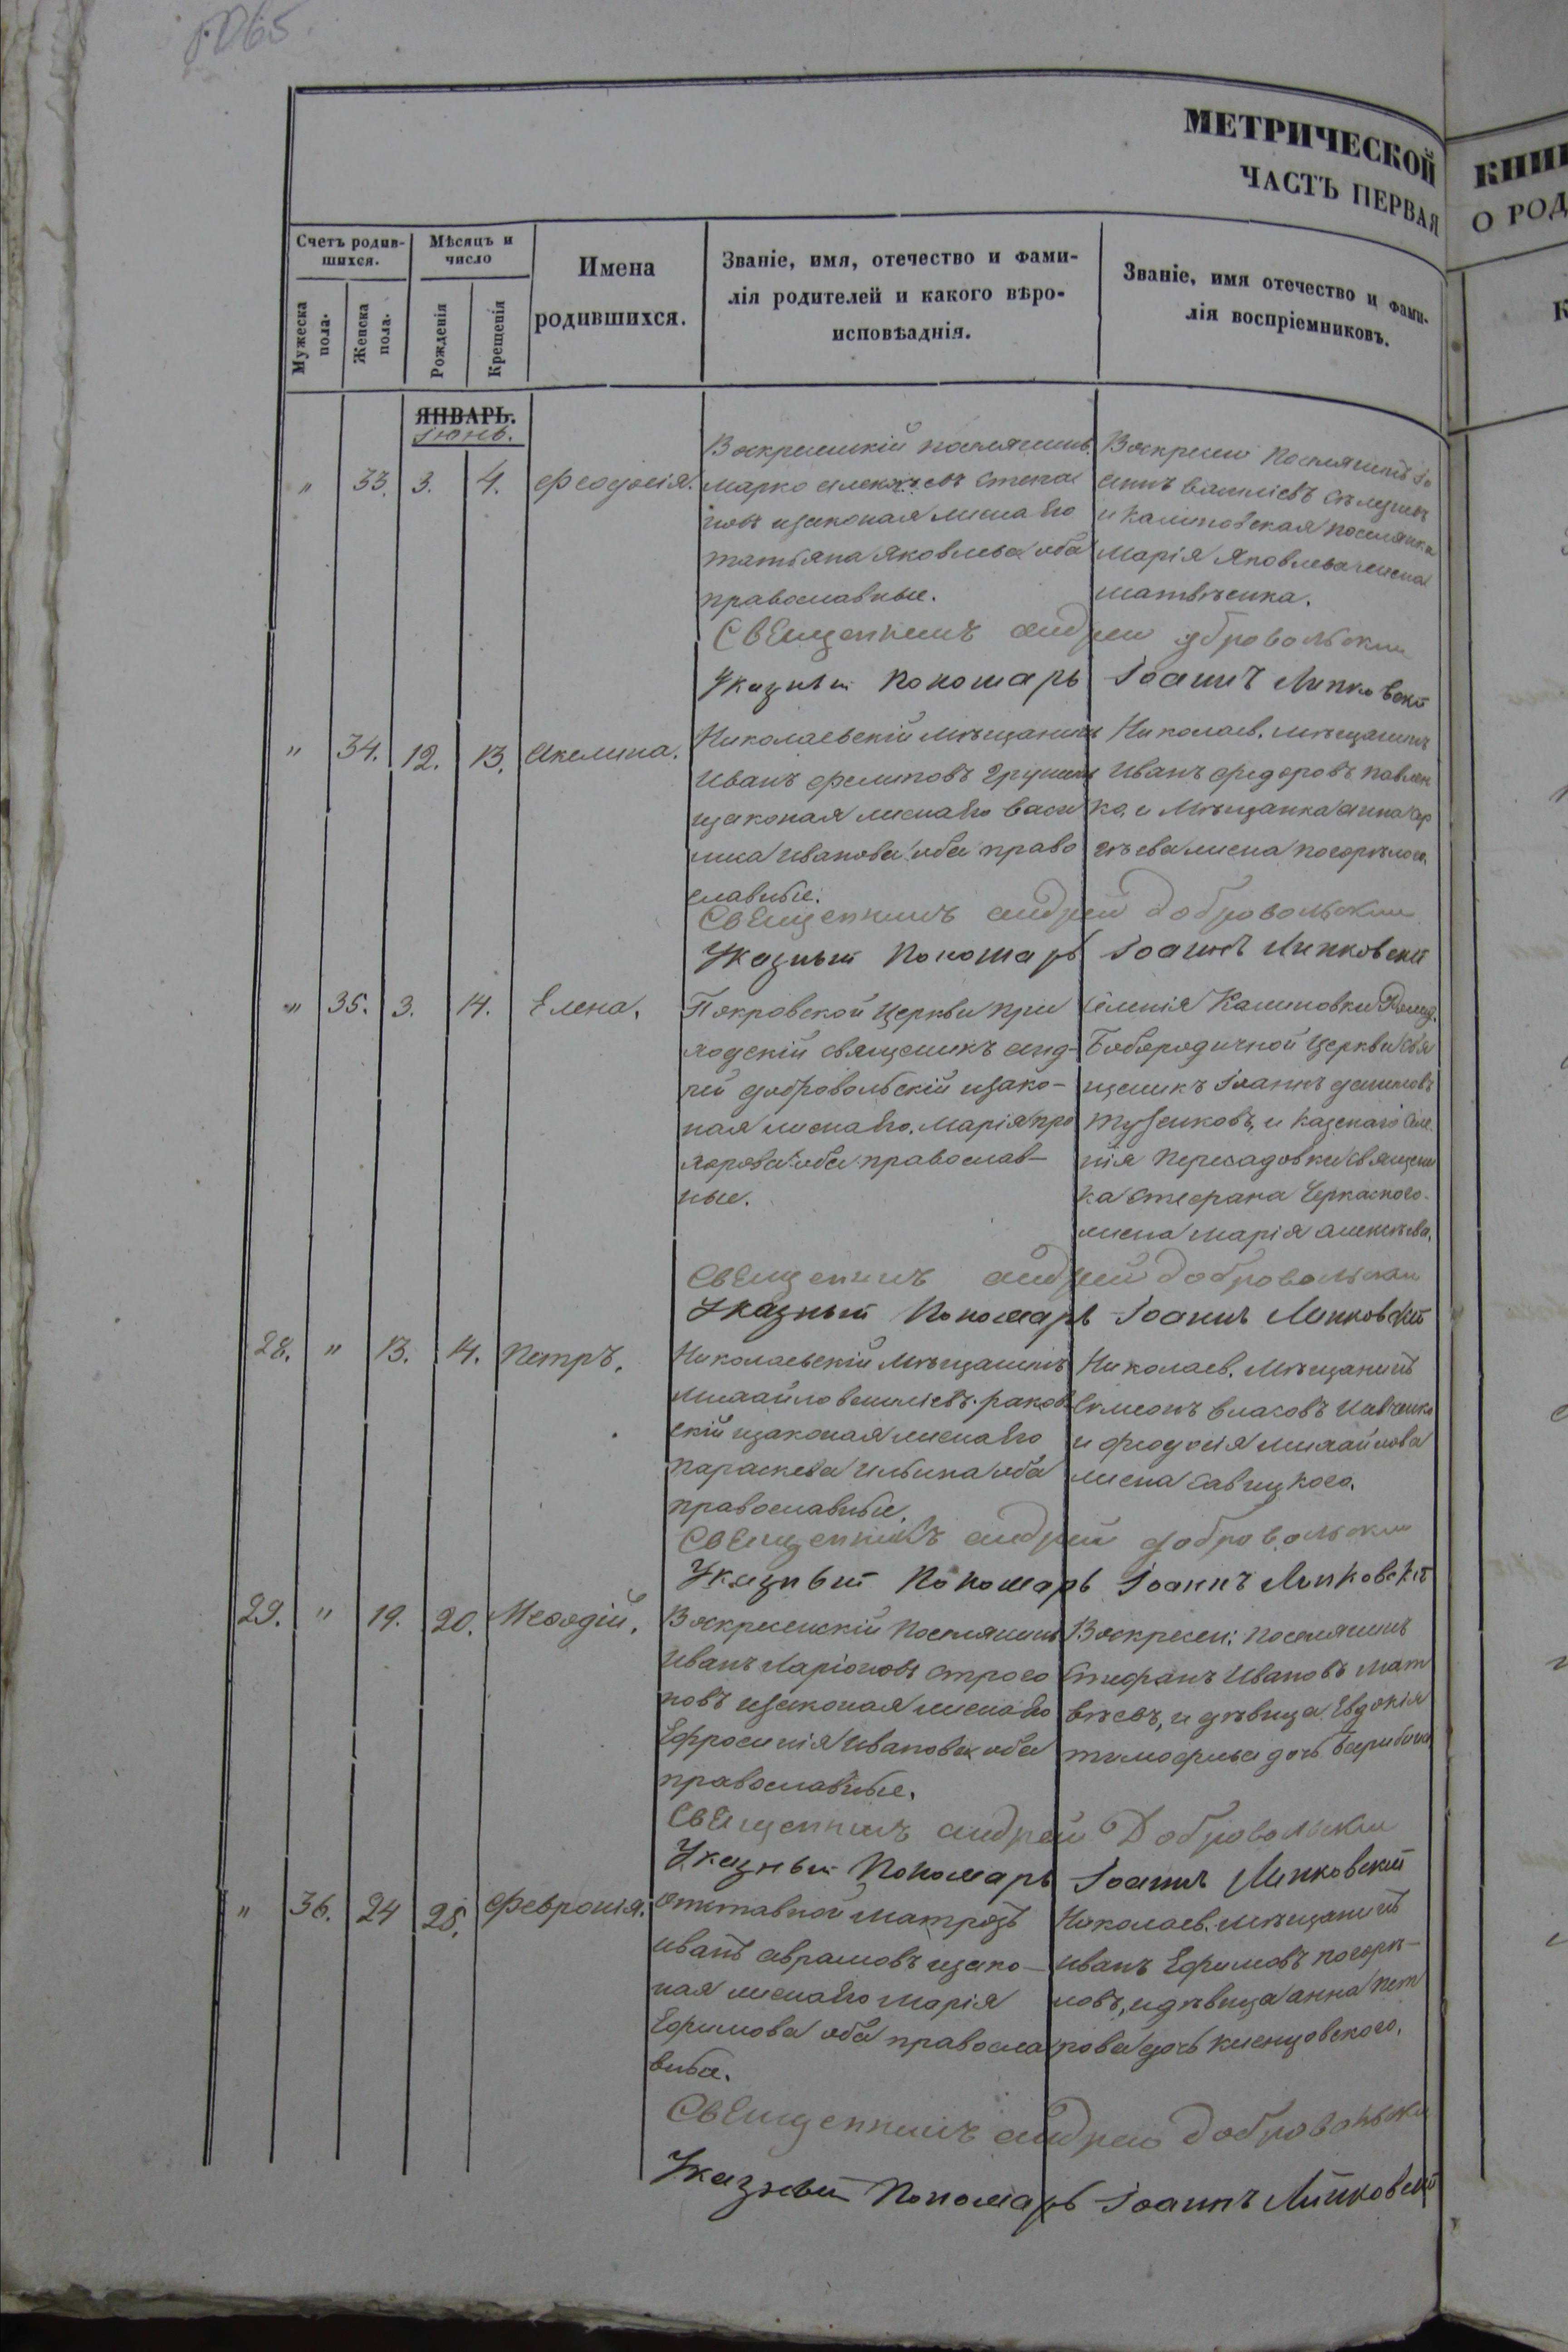 МЕТРИЧЕСКОЙ
ЧАСТЬ ПЕРВАЯ
КНИ
О РОД
Счетъ родив-
шихся.
Мѣсяцъ и
число
Имена
родившихся.
Званіе, имя, отечество и фами-
лія родителей и какого вѣро-
исповѣаднія.
Званіе, имя отечество и фами-
лія воспріемниковъ.
Мужеска
пола.
Женска
пола.
Рожденія
Крещенія
ЯНВАРЬ.
Іюнь.
" 33. 3. 4. Феодосія.
Воскресенскій поселянинъ
Марко Алексѣевъ Степа
новъ изаконая жена Его
Татьяна Яковлева оба
православные.
Воскресен Поселянинъ Іо
аннъ Василіевъ
и Калиновская поселянка
Марія Яковлева жена
Матвѣенка.
Священникъ Андрей Добровольскій
Указный Пономарь Іоаннъ Липковскій
" 34. 12. 13. Акелина.
Николаевскій мѣщанинъ
Иванъ Филиповъ
изаконая жена Его Васи
лиса Иванова оба право
славные.
Николаев. мѣщанинъ
Иванъ Федоровъ Павлен
ко, и Мѣщанка Анна
жена Погорѣлого.
Священникъ Андрей Добровольскій
Указный Пономарь Іоаннъ Липковскій
" 35. 3. 14. Елена.
Покровской Церкви При
ходскій священикъ Анд-
рей Добровольскій изако-
ная жена Его, Марія про
хорова оба православ-
ные.
Селенія Калиновки Рожд.
Богородичной Церкви Свя
щеникъ Іоаннъ
и Казенаго Селе
нія Пересадовки Священи
ка Стефана Черкаского
жена Марія Алексѣева.
Священникъ Андрей Добровольскій
Указный Пономарь Іоаннъ Липковскій
28. " 13. 14. Петръ.
Николаевскій Мѣщанинъ
Михайло Василіевъ Раков
скій изаконая жена Его
Параскева Ильина оба
православные.
Николаев. Мѣщанинъ
Симеонъ Власовъ
и Феодосія Михайлова
жена Савицкого.
Священникъ Андрей Добровольскій
Указный Пономарь Іоаннъ Липковскій
29. " 19. 20. Меѳодій.
Воскресенскій Поселянинъ
Иванъ Ларіоновъ Строго
новъ изаконая жена Его
Ефросинія Иванова оба
православные.
Воскресен: поселянинъ
Стефанъ Ивановъ Мат
вѣевъ, и дѣвица Евдокія
Тимофеева дочь
Священникъ Андрей Добровольскій
Указный Пономарь Іоаннъ Липковскій
" 36. 24 25. Февронія.
Отставной матрозъ
Иванъ Аврамовъ изако-
ная жена Его Марія
Ефимова оба правосла
вные.
Николаев. мѣщанинъ
Иванъ Ефимовъ Погорѣ-
ловъ, и дѣвица Анна Пет
рова дочь
Священникъ Андрей Добровольскій
Указный Пономарь Іоаннъ Липковскій